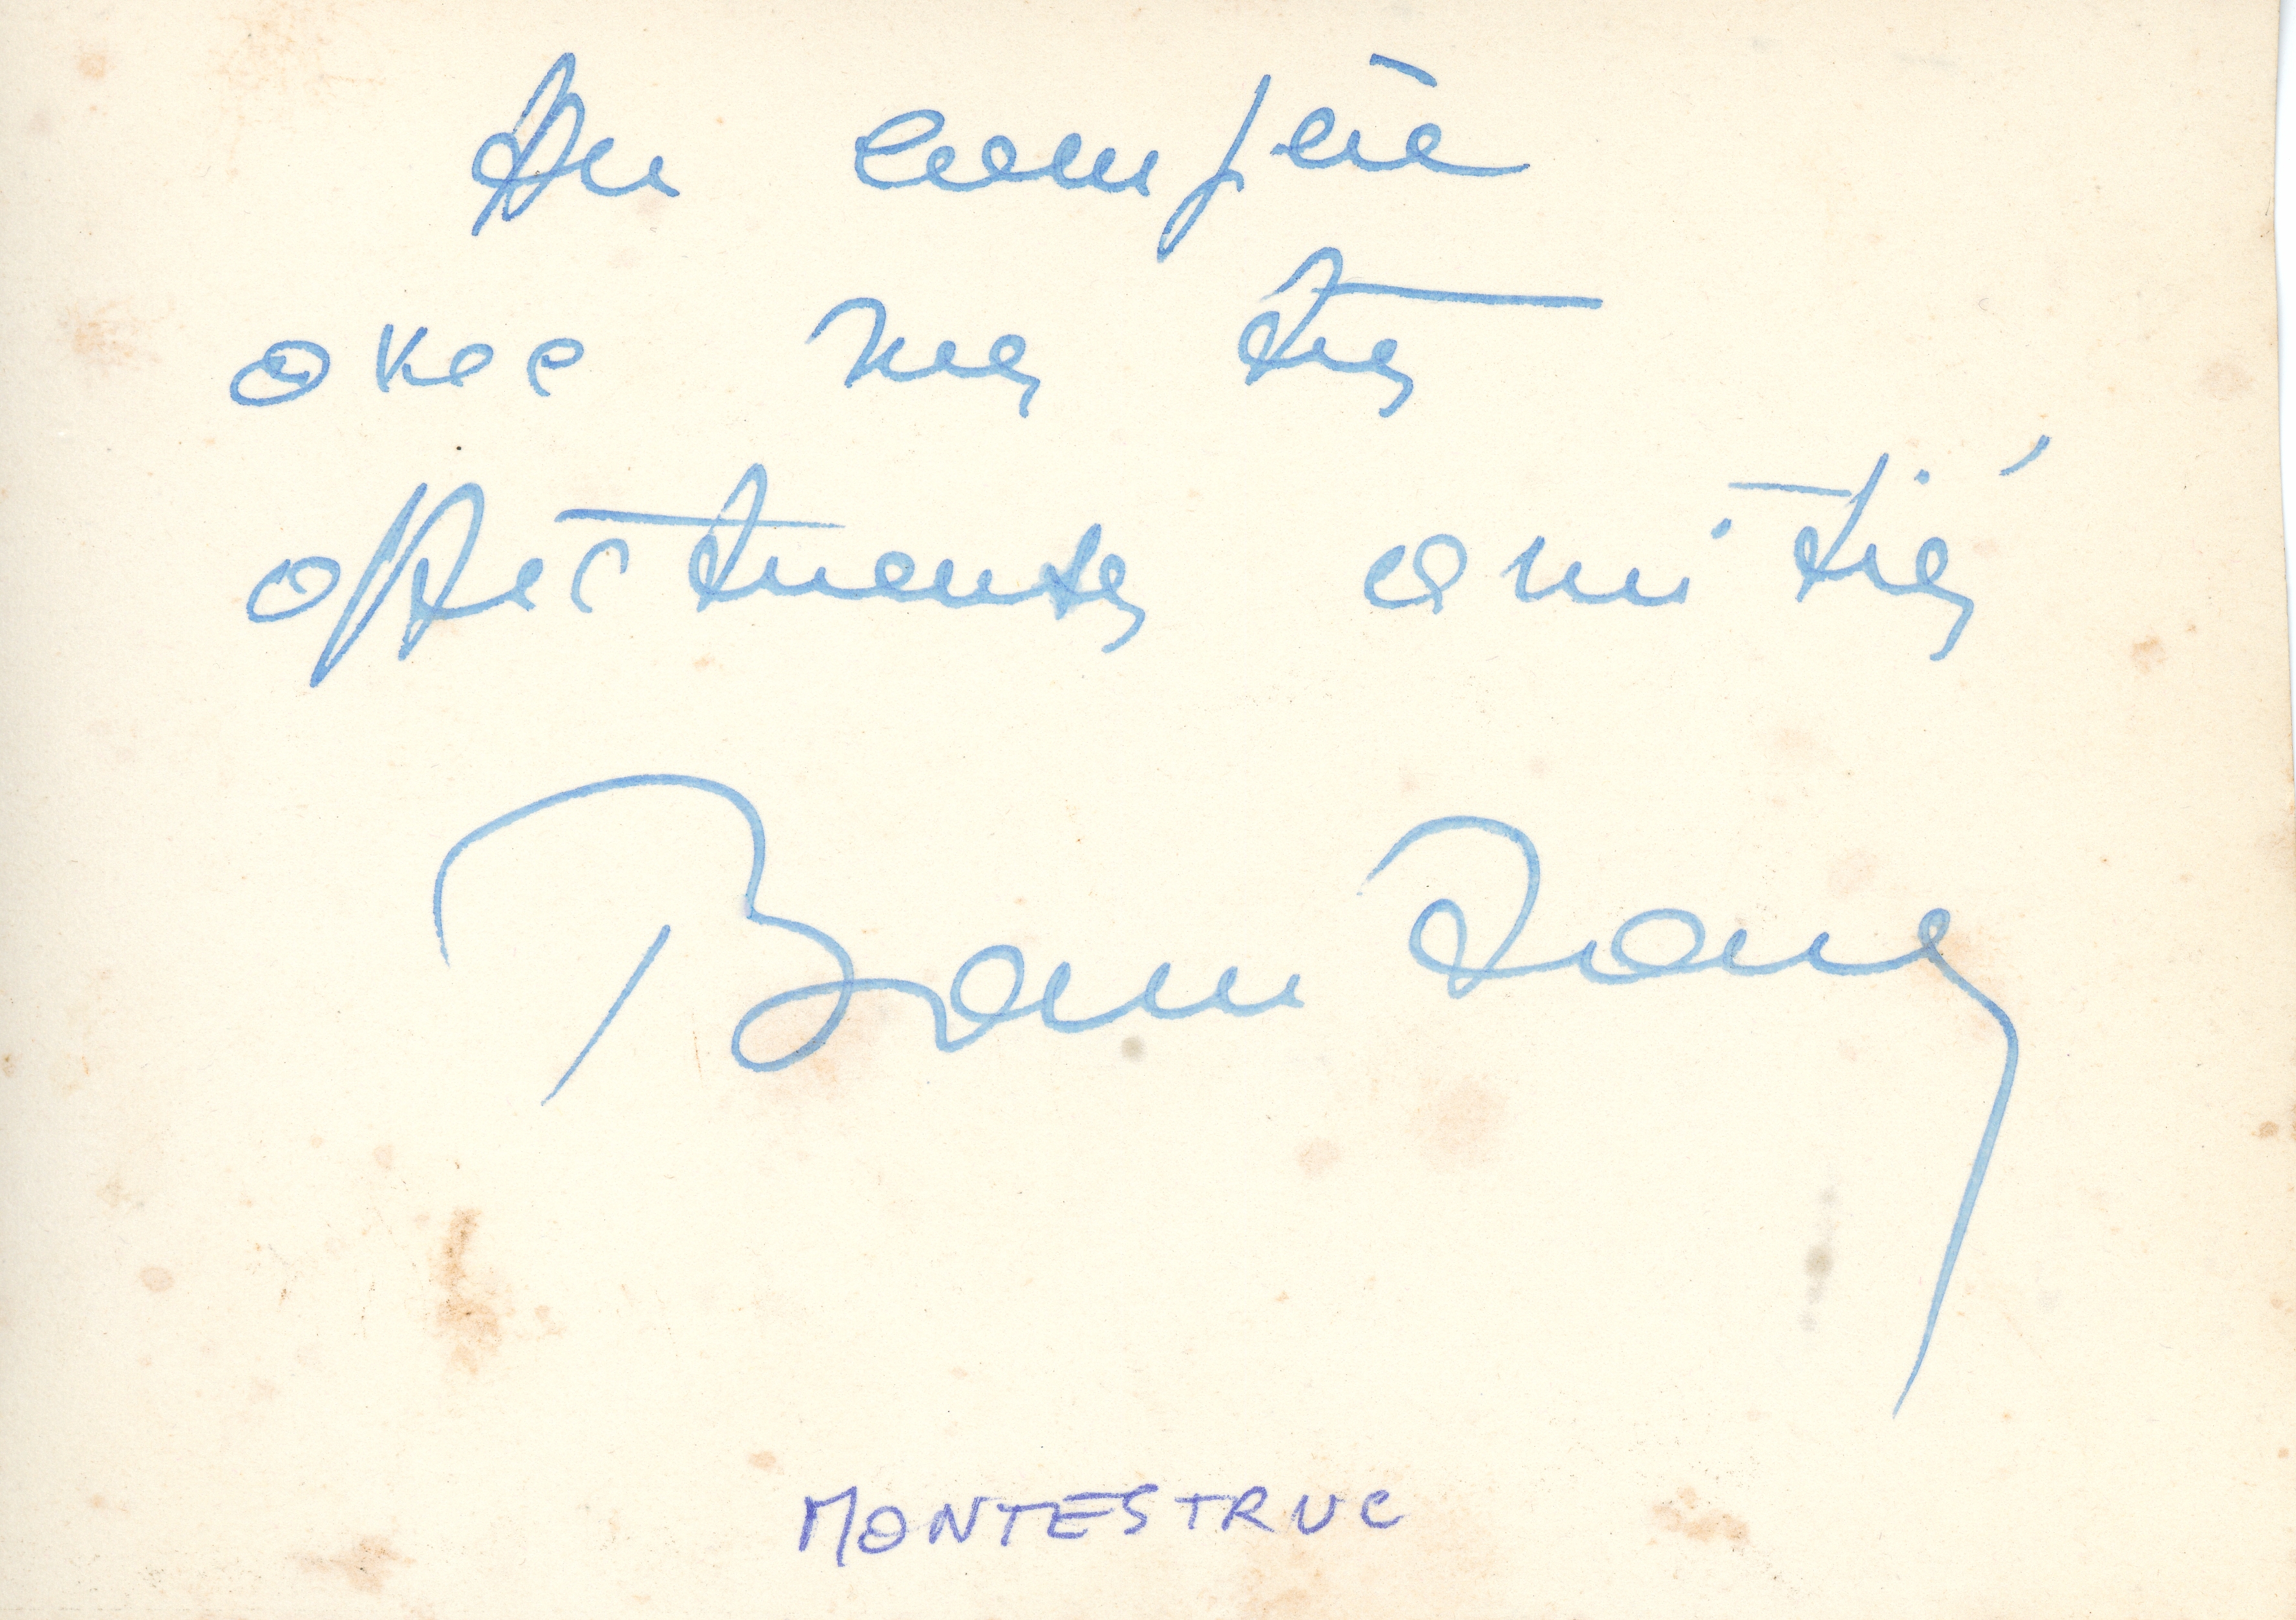 Au compère
avec ma très
affectueuse amitié
MONTESTRUC